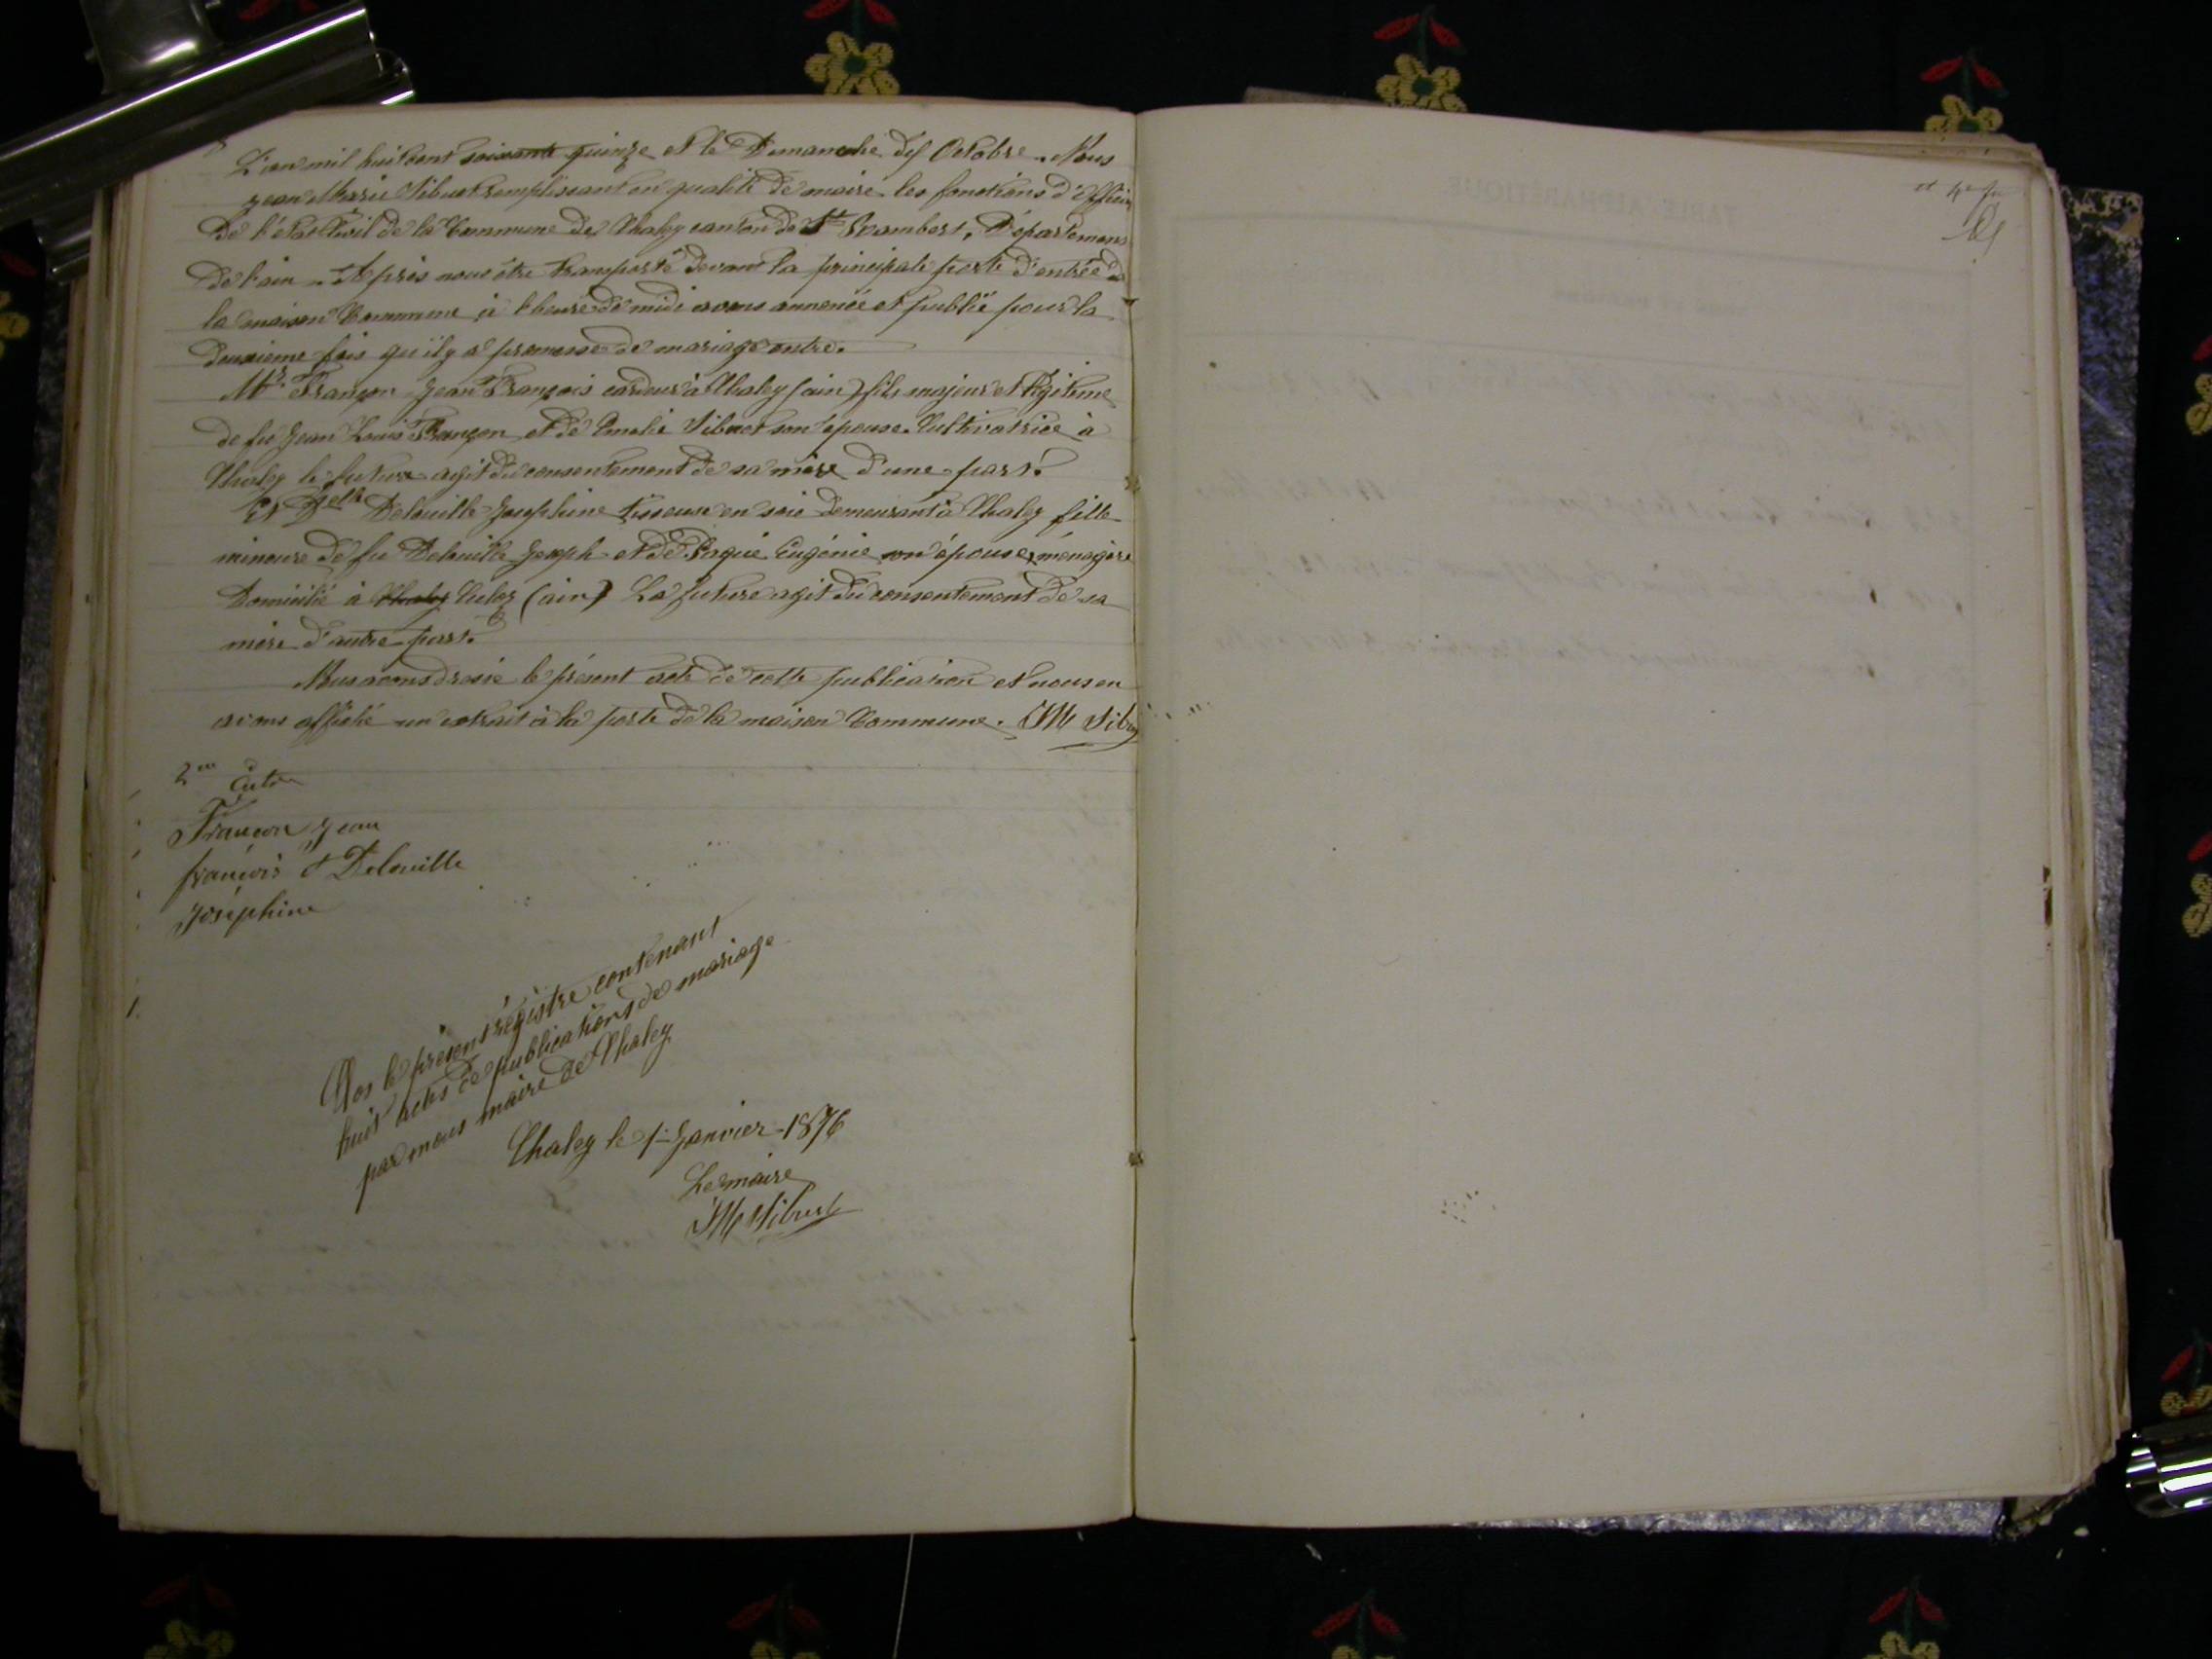 L'an mil huit cent soixante quinze et le Dimanche dix Octobre. Nous
jean Marie Sibuet remplissant en qualité de maire les fonctions d'officier
de l'état Civil de la Commune de Chaley canton de St Rambert, Département
de l'ain. Après nous être transporté devant la principale porte d'entrée de
la maison Commune à l'heure de midi avons annoncé et publié pour la
deuxieme fois qu'il y a promesse de mariage entre.
Mr Françon Jean François cardeur à Chaley (ain) fils majeur et légitime
de feu Jean Louis Françon et de Emelie Sibuet son épouse. Cultivatrice à
Chaley le future agit du consentement de sa mère d'une part.
Et Delle Delouille Josephine tisseuse en soie demeurant à Chaley fille
mineure de feu Delouille Joseph et de Eugénie son épouse, ménagère
Domicilié à Chaley Culoz (ain) La future agit du consentement de sa
mère d'autre part.
Nous avons dressé le présent acte de cette publication et nous en
avons affiché un extrait à la porte de la maison Commune. JM Sibu
2me
Entre
Françon Jean
françois et Delouille
Joséphine
Clos le présent régistre contenant
huit actes de publications de mariage
par nous maire de Chaley
Chaley le 1er Janvier 1876
Le maire
JM Sibuet
et
TABLE ALPHABÉTIQUE